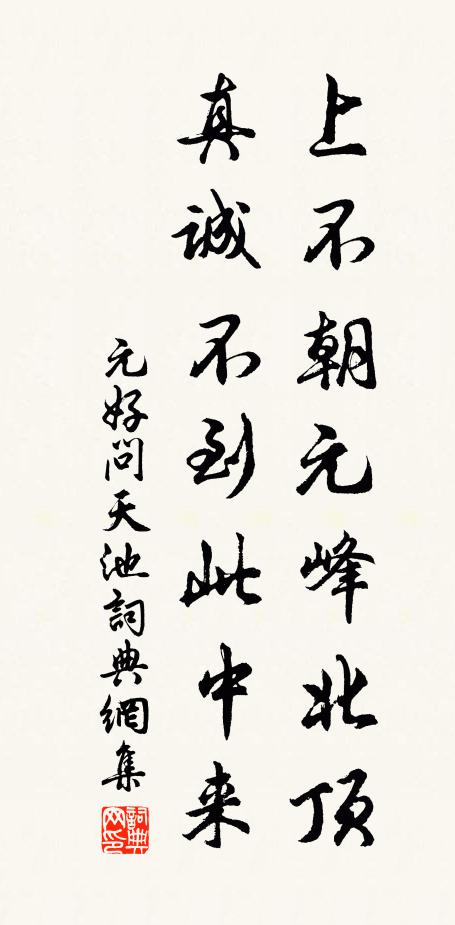 上不朝元峰北顶
真诚不到此中来
元好问天池詞典網集
詞典网印